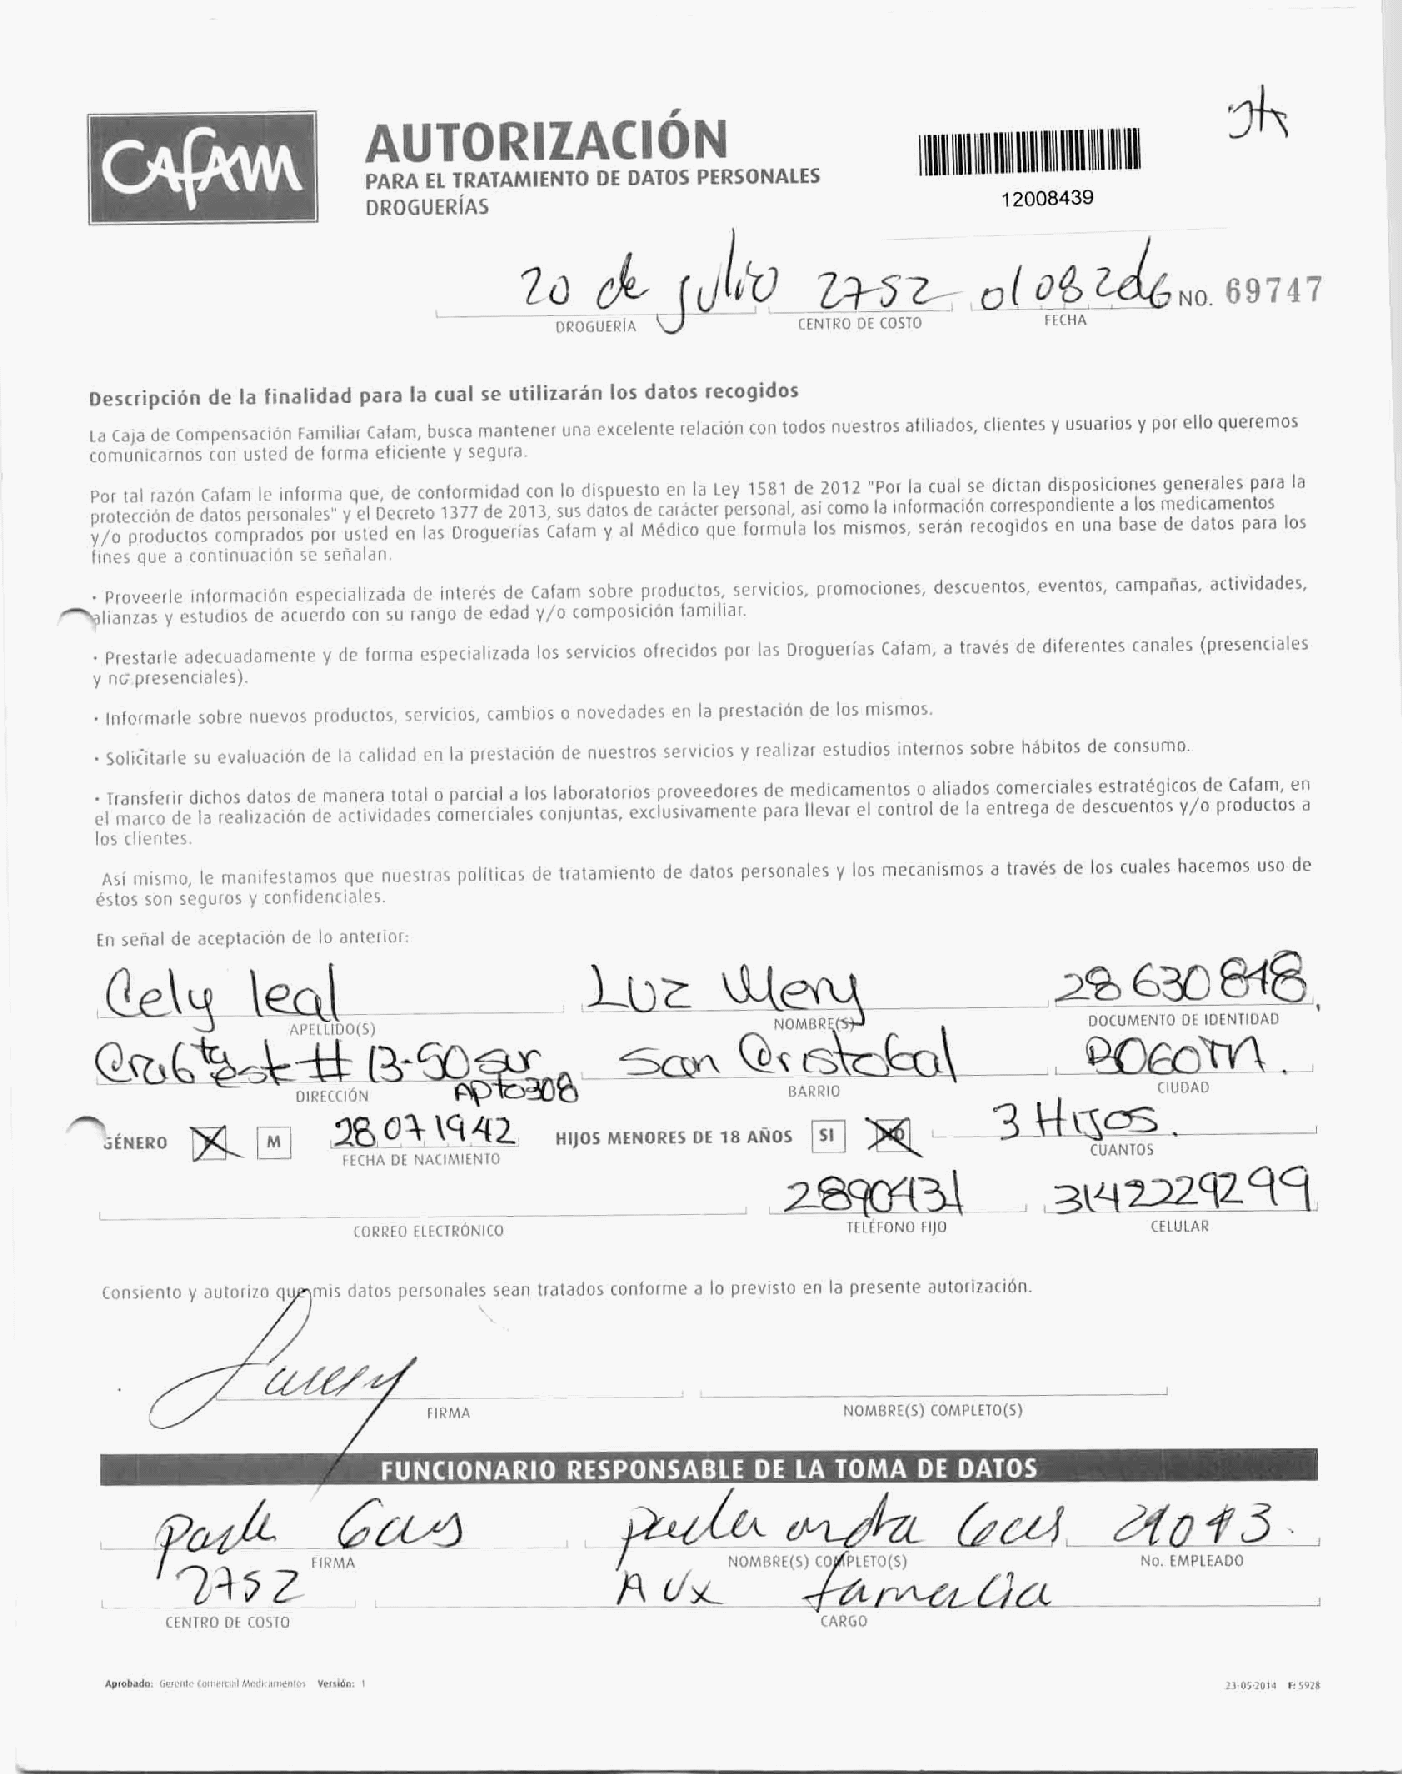 CAFAM
AUTORIZACIÓN
PARA EL TRATAMIENTO DE DATOS PERSONALES
DROGUERÍAS
12008439
20 de julio 2752 01 08 No. 69747
DROGUERÍA CENTRO DE COSTO FECHA
Descripción de la finalidad para la cual se utilizarán los datos recogidos
La Caja de Compensación Familiar Cafam, busca mantener una excelente relación con todos nuestros afiliados, clientes y usuarios y por ello queremos
comunicarnos con usted de forma eficiente y segura.
Por tal razón Cafam le informa que, de conformidad con lo dispuesto en la Ley 1581 de 2012 "Por la cual se dictan disposiciones generales para la
protección de datos personales" y el Decreto 1377 de 2013, sus datos de carácter personal, así como la información correspondiente a los medicamentos
y/o productos comprados por usted en las Droguerías Cafam y al Médico que formula los mismos, serán recogidos en una base de datos para los
fines que a continuación se señalan.
· Proveerle información especializada de interés de Cafam sobre productos, servicios, promociones, descuentos, eventos, campañas, actividades,
alianzas y estudios de acuerdo con su rango de edad y/o composición familiar.
· Prestarle adecuadamente y de forma especializada los servicios ofrecidos por las Droguerías Cafam, a través de diferentes canales (presenciales
y no presenciales).
· Informarle sobre nuevos productos, servicios, cambios o novedades en la prestación de los mismos.
· Solicitarle su evaluación de la calidad en la prestación de nuestros servicios y realizar estudios internos sobre hábitos de consumo.
· Transferir dichos datos de manera total o parcial a los laboratorios proveedores de medicamentos o aliados comerciales estratégicos de Cafam, en
el marco de la realización de actividades comerciales conjuntas, exclusivamente para llevar el control de la entrega de descuentos y/o productos a
los clientes.
Así mismo, le manifestamos que nuestras políticas de tratamiento de datos personales y los mecanismos a través de los cuales hacemos uso de
éstos son seguros y confidenciales.
En señal de aceptación de lo anterior:
Cely leal Luz Mery 28 630 848
APELLIDO(S) NOMBRE(S) DOCUMENTO DE IDENTIDAD
Cra 6ta Est # 13-50 sur San Cristobal BOGOTA.
DIRECCIÓN APto 308 BARRIO CIUDAD
GÉNERO M 28 07 1942 HIJOS MENORES DE 18 AÑOS SI NO 3 Hijos.
FECHA DE NACIMIENTO CUANTOS
2890431 3142229299
CORREO ELECTRÓNICO TELÉFONO FIJO CELULAR
Consiento y autorizo que mis datos personales sean tratados conforme a lo previsto en la presente autorización.
FIRMA NOMBRE(S) COMPLETO(S)
FUNCIONARIO RESPONSABLE DE LA TOMA DE DATOS
FIRMA NOMBRE(S) COMPLETO(S) No. EMPLEADO
2752 Aux famacia
CENTRO DE COSTO CARGO
Aprobado: Gerente Comercial Medicamentos Versión: 1
23-05-2014 F: 5928